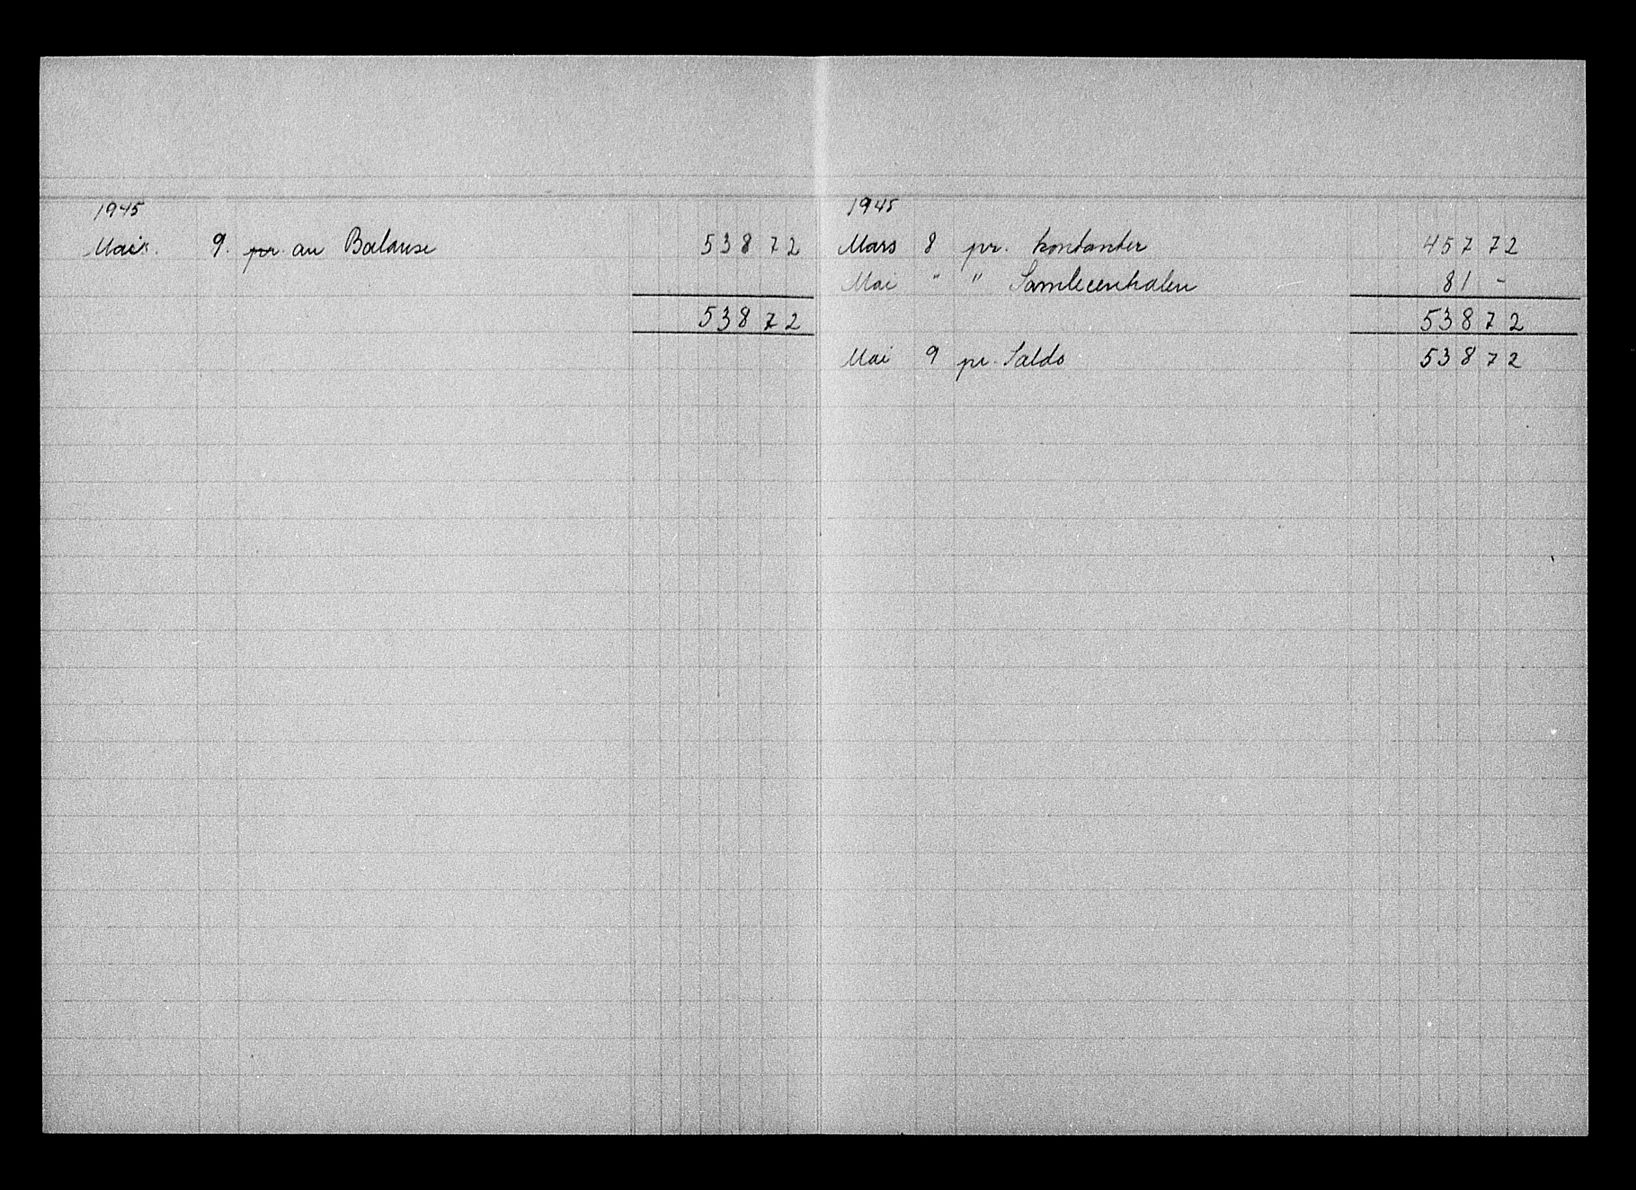 1945
Mai. 9. pr. an Balanse 538 72
538 72
1945
Mars 8 pr. kontanter 457 72
Mai " " Samlecentralen 81 -
538 72
Mai 9 pr. Saldo 538 72